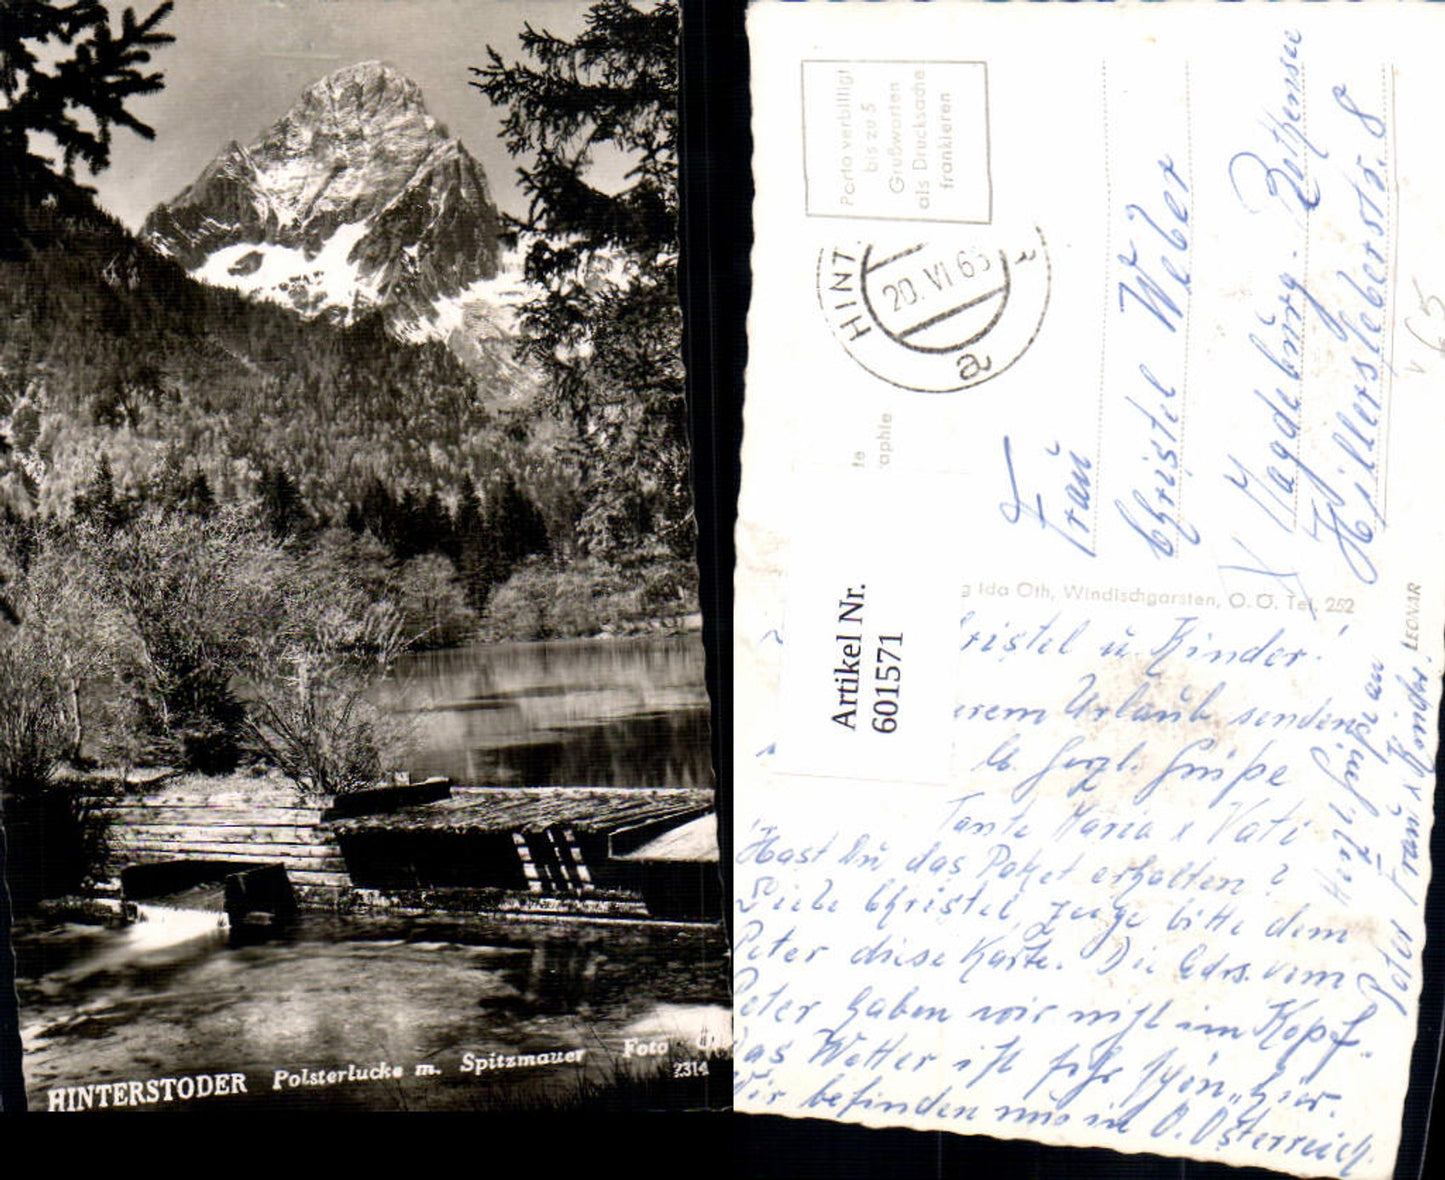 HINTERSTODER Polsterlucke m. Spitzmauer Foto
2314
Porto verbilligt
bis zu 5
Grußworten
als Drucksache
frankieren
HINT
20. VI 65
a
Frau
Christel Weber
Magdeburg-Rothensee
Hillersleberstr. 8
65
g Ida Oth, Windischgarsten, O.Ö. Tel. 252
LEONAR
Artikel Nr.
601571
ristel u. Kinder!
erem Urlaub senden
lb. herzl. Grüße
Tante Maria u Vati
Hast Du das Paket erhalten?
Liebe Christel, zeige bitte dem
Peter diese Karte. Die Adrs. vom
Peter haben wir nicht im Kopf.
Das Wetter ist sehr schön hier.
Wir befinden uns in O. Österreich.
Herzl. Grüße an
Peter Frau u Kinder.